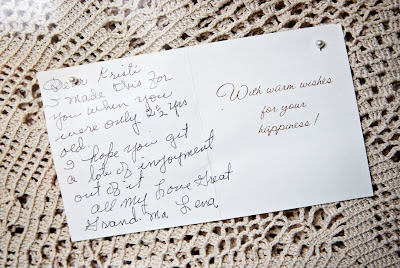 Dear Kristi
I made this for
you when you
were only 2½ yrs
old.
I hope you get
a lot of injoyment
out of it
all my Love Great
Grand Ma Lena
With warm wishes
for your
happiness!